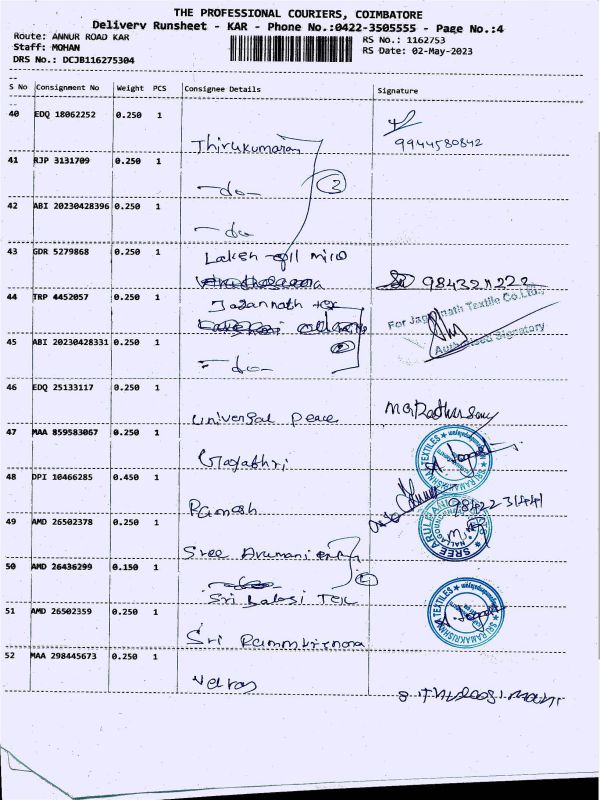 THE PROFESSIONAL COURIERS, COIMBATORE
Delivery Runsheet - KAR - Phone No.:0422-3505555 - Page No.:4
Route: ANNUR ROAD KAR
RS No.: 1162753
Staff: MOHAN
RS Date: 02-May-2023
DRS No.: DCJB116275304
S No Consignment No Weight PCS Consignee Details Signature
40 EDQ 18062252 0.250 1
Thirukumaran 9944580842
41 RJP 3131709 0.250 1
-do- 3
42 ABI 20230428396 0.250 1
-do-
43 GDR 5279868 0.250 1
44 TRP 4452057 0.250 1
Jagannath tex
For Jagannath Textile Co.Ltd.,
Authorised Signatory
45 ABI 20230428331 0.250 1
-do- 2
46 EDQ 25133117 0.250 1
universal peace
47 MAA 859583067 0.250 1
Gayathri
SRI RAMAKRISHNA TEXTILES
48 DPI 10466285 0.450 1
Ramesh
49 AMD 26502378 0.250 1
Sree Arumani
SREE ARUL
50 AMD 26436299 0.150 1
Sri Balaji Tex
51 AMD 26502359 0.250 1
Sri Rammkrishnora
SRI RAMAKRISHNA TEXTILES
52 MAA 298445673 0.250 1